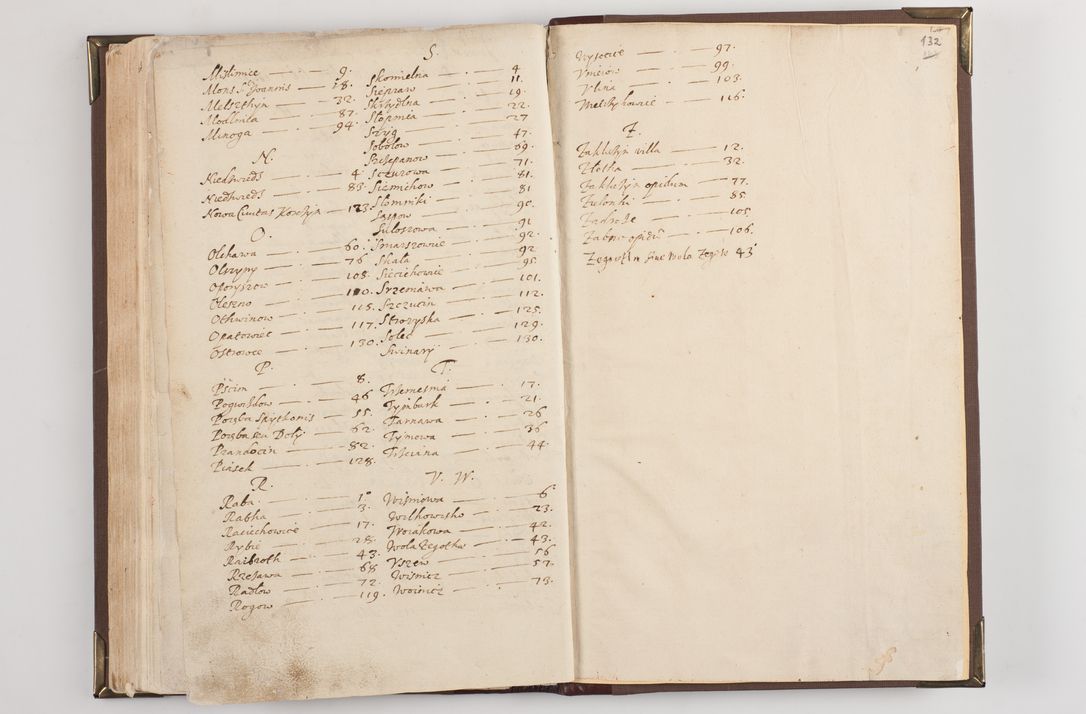 Myslimice — 9.
Mons S. Joannis — 18.
Melszthyn — 32.
Modlnica — 87.
Minoga — 94.
N.
Niedzwiedz — 4.
Niedzwiedz — 83.
Nowa Civitas Korczyn — 123.
O.
Olchawa — 60.
Olszyny — 76.
Oporyszow — 108.
Olesno — 110.
Othwinow — 115.
Opatowiec — 117.
Ostrowce — 130.
P.
Pscim — 8.
Pogwisdow — 46
Poręba Spytkonis — 55.
Poręba seu Doly — 62.
Prandocin — 82.
Piasek — 128.
R.
Raba — 1
Rabka — 3.
Raciechowice — 17.
Rybie — 28.
Raibroth — 43.
Rzezawa — 68
Radlow — 72.
Rogow — 119.
S.
Skomielna — 4
Siepraw — 11.
Skrzydlna — 19.
Slopnica — 22.
Szyg — 27
Sobolow — 47.
Szczepanow — 69.
Sczurowa — 71.
Siemichow — 81.
Slomniki — 81
Saspow — 90.
Suloszowa — 91
Smarszowic — 92.
Skala — 92
Sieciechowic — 95.
Srzeniawa — 101.
Szczucin — 112.
Strozyska — 125.
Solec — 129.
Swinary — 130.
T.
Trzemesnia — 17.
Tymbark — 21.
Tarnawa — 26
Tymowa — 36
Trzciana — 44.
V. W.
Wisniowa — 6
Wilkowisko — 23.
Woiakowa — 42.
Wola Zegotha — 43.
Vszew — 56
Wisnicz — 57.
Woinicz — 73.
132
Wysocie — 97.
Vmiejow — 99.
Vlina — 103.
Mieczychowic — 116.
Z.
Zakluczyn villa — 12.
Zlotha — 32.
Zakluczyn opidum — 77.
Zielonki — 85.
Zadroze — 105.
Zabno opidū — 106.
Zegocina sive Wola 43